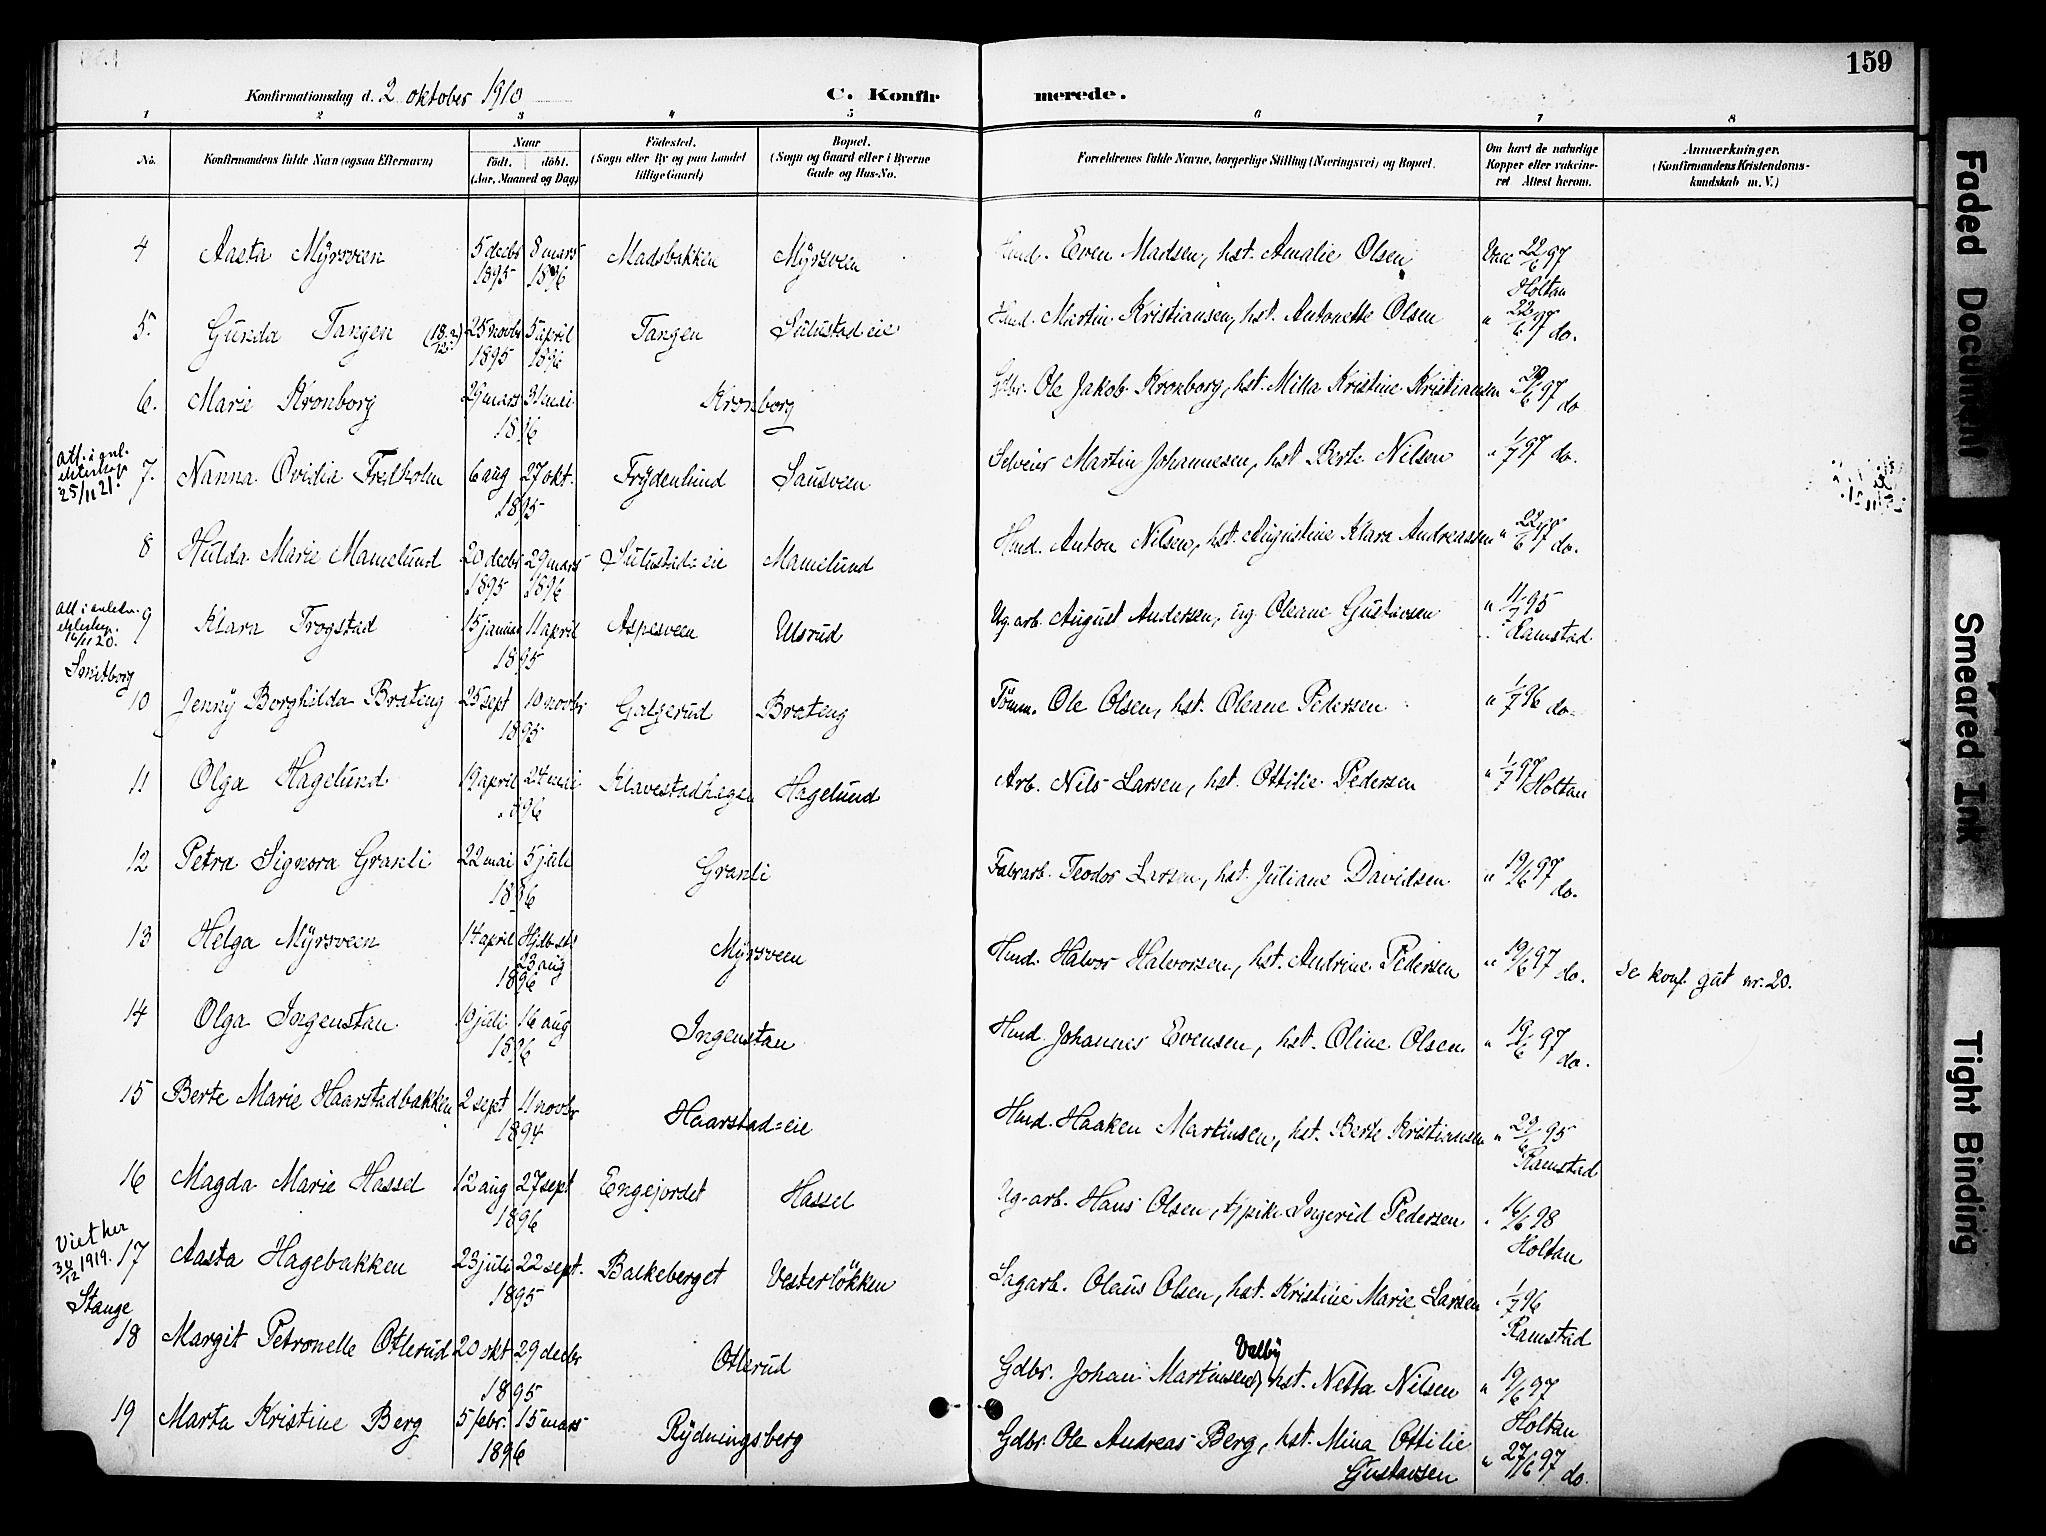 159
Konfirmationsdag d. 2 oktober 1910 C. Konfirmerede.
1 2 3 4 5 6 7 8
No. Konfirmandens fulde Navn (ogsaa Efternavn) Naar födt. döbt. (Aar, Maaned og Dag) Födested. (Sogn eller By og paa Landet tillige Gaard) Bopæl. (Sogn og Gaard eller i Byerne Gade og Hus-No. Forældrenes fulde Navne, borgerlige Stilling (Næringsvei) og Bopæl. Om havt de naturlige Kopper eller vaccineret Attest herom. Anmærkninger. (Konfirmandens Kristendomskundskab m. V.)
4 Aasta Myrsveen 5 decbr 1895 8 mars 1896 Madsbakken Myrsveen Hmd. Even Madsen, hst. Amalie Olsen Vacc 22/6 97 Holtan
5. Gunda Tangen 25 novbr 1895 5 april 1896 Tangen Sulustad eie Hmd. Martin Kristiansen, hst. Antonette Olsen " 22/6 97 do.
6. Marie Kronborg 29 mars 31 mai 1896 Kronborg Gdbr. Ole Jakob Kronborg, hst. Milla Kristine Kristiansen 97 do
Att. i anl. ekteskap 25/11 21.
7. Nanna Ovidia Fredholm 6 aug 27 okt. 1895 Frydenlund Sausveen Selveier Martin Johannesen, hst Berte Nilsen " 1/7 97 do.
8 Hulda Marie Mamelund 20 decbr 1895 29 mars 1896 Sulustad=eie Mamelund Hmd. Anton Nilsen, hst. Augustine Klara Andreassen " 22/6 97 do.
Att i anledn. ekteskap. 16/11 20.
9 Klara Trogstad 15 januar 11 april 1895 Aspesveen Ulsrud Ug. arb. August Andersen, ug. Oleane Gustavsen " 11/7 95 Ramstad
10 Jenny Borghilda Brateng 25 sept 10 novbr 1895 Galgerud Brateng Tömm. Ole Olsen, hst. Oleane Pedersen " 1/7 96 do.
11 Olga Hagelund 19 april 24 mai 1896 Klavestadhagen Hagelund Arb. Nils Larsen, hst. Ottilie Pedersen " 1/7 97 Holtan
12 Petra Signora Granli 22 mai 5 juli 1896 Granli Fabrarb. Teodor Larsen, hst. Juliane Davidsen " 19/6 97 do.
13 Helga Myrsveen 14 april 23 aug 1896 Myrsveen Hmd. Halvor Halvorsen, hst. Andrine Pedersen " 19/6 97 do. Se konf. gut nr. 20.
14 Olga Ingenstan 10 juli 16 aug 1896 Ingenstan Hmd. Johannes Evensen, hst. Oline Olsen " 19/6 97 do.
15 Berte Marie Haarstadbakken 2 sept 11 novbr 1894 Haarstad=eie Hmd. Haaken Martinsen, hst. Berte Kristiansen " 29/6 95 Ramstad
16 Magda Marie Hassel 12 aug 27 sept 1896 Engejordet Hassel Ug. arb. Hans Olsen, tj pike Ingerid Pedersen " 16/6 98 Holtan
Viet her 30/12 1919. Stange
17 Aasta Hagebakken 23 juli 22 sept. 1895 Bakkeberget Vesterlökken Sagarb. Olaus Olsen, hst. Kristine Marie Larsen " 1/7 96 Ramstad
18 Margit Petronelle Otterud 20 okt 29 decbr 1895 Otterud Gdbr. Johan Martinsen Valby, hst. Netta Nilsen " 19/6 97 Holtan
19 Marta Kristine Berg 5 febr. 15 mars 1896 Rydningsberg Gdbr. Ole Andreas Berg, hst. Mina Ottilie Gustavsen " 27/6 97 do.
Faded Document
Smeared Ink
Tight Binding